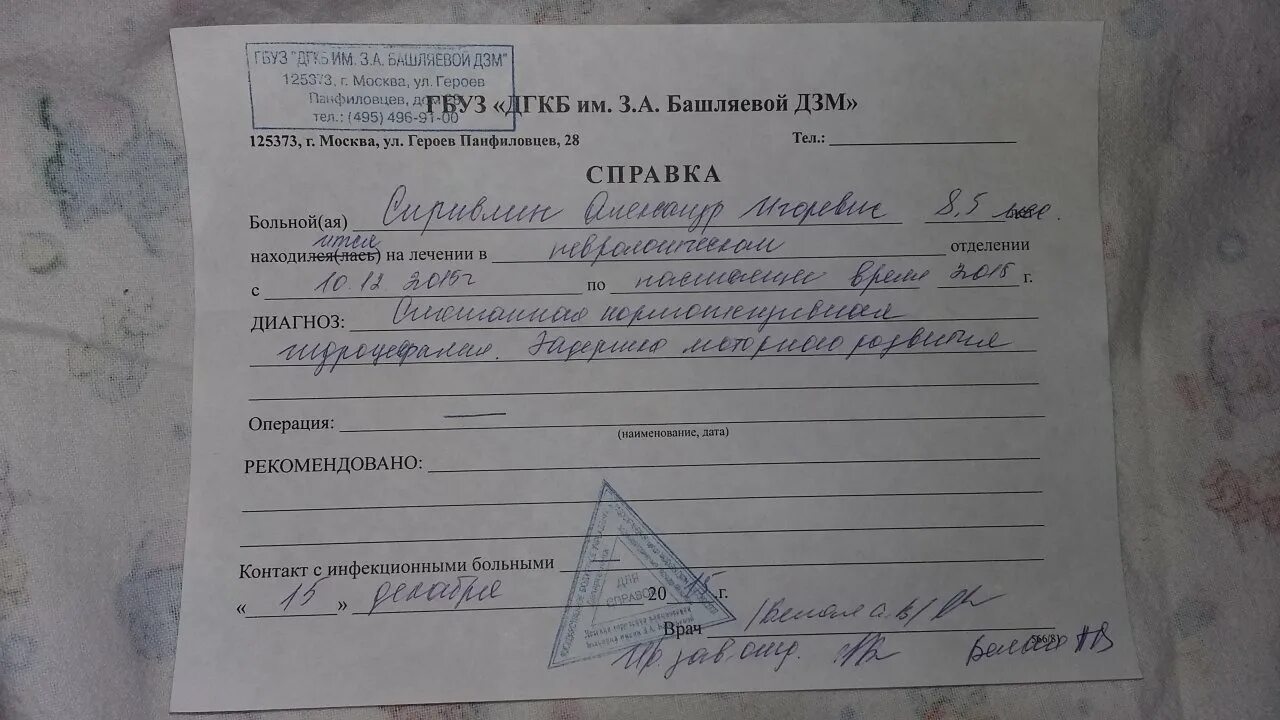 ГБУЗ "ДГКБ ИМ. З.А. БАШЛЯЕВОЙ ДЗМ"
125373, г. Москва, ул. Героев
Панфиловцев, дом
тел.: (495) 496-91-00
ГБУЗ «ДГКБ им. З.А. Башляевой ДЗМ»
125373, г. Москва, ул. Героев Панфиловцев, 28 Тел.:
СПРАВКА
Больной(ая) Александр Игоревич 8,5
находился(лась) ится на лечении в неврологическом отделении
с 10.12.2015г по настоящее время 2015 г.
ДИАГНОЗ: Смешанная нормотензивная
гидроцефалия. Задержка моторного развития
Операция: —
(наименование, дата)
РЕКОМЕНДОВАНО:
Контакт с инфекционными больными —
« 15 » декабря 2015 г.
ДЛЯ
СПРАВОК
Врач